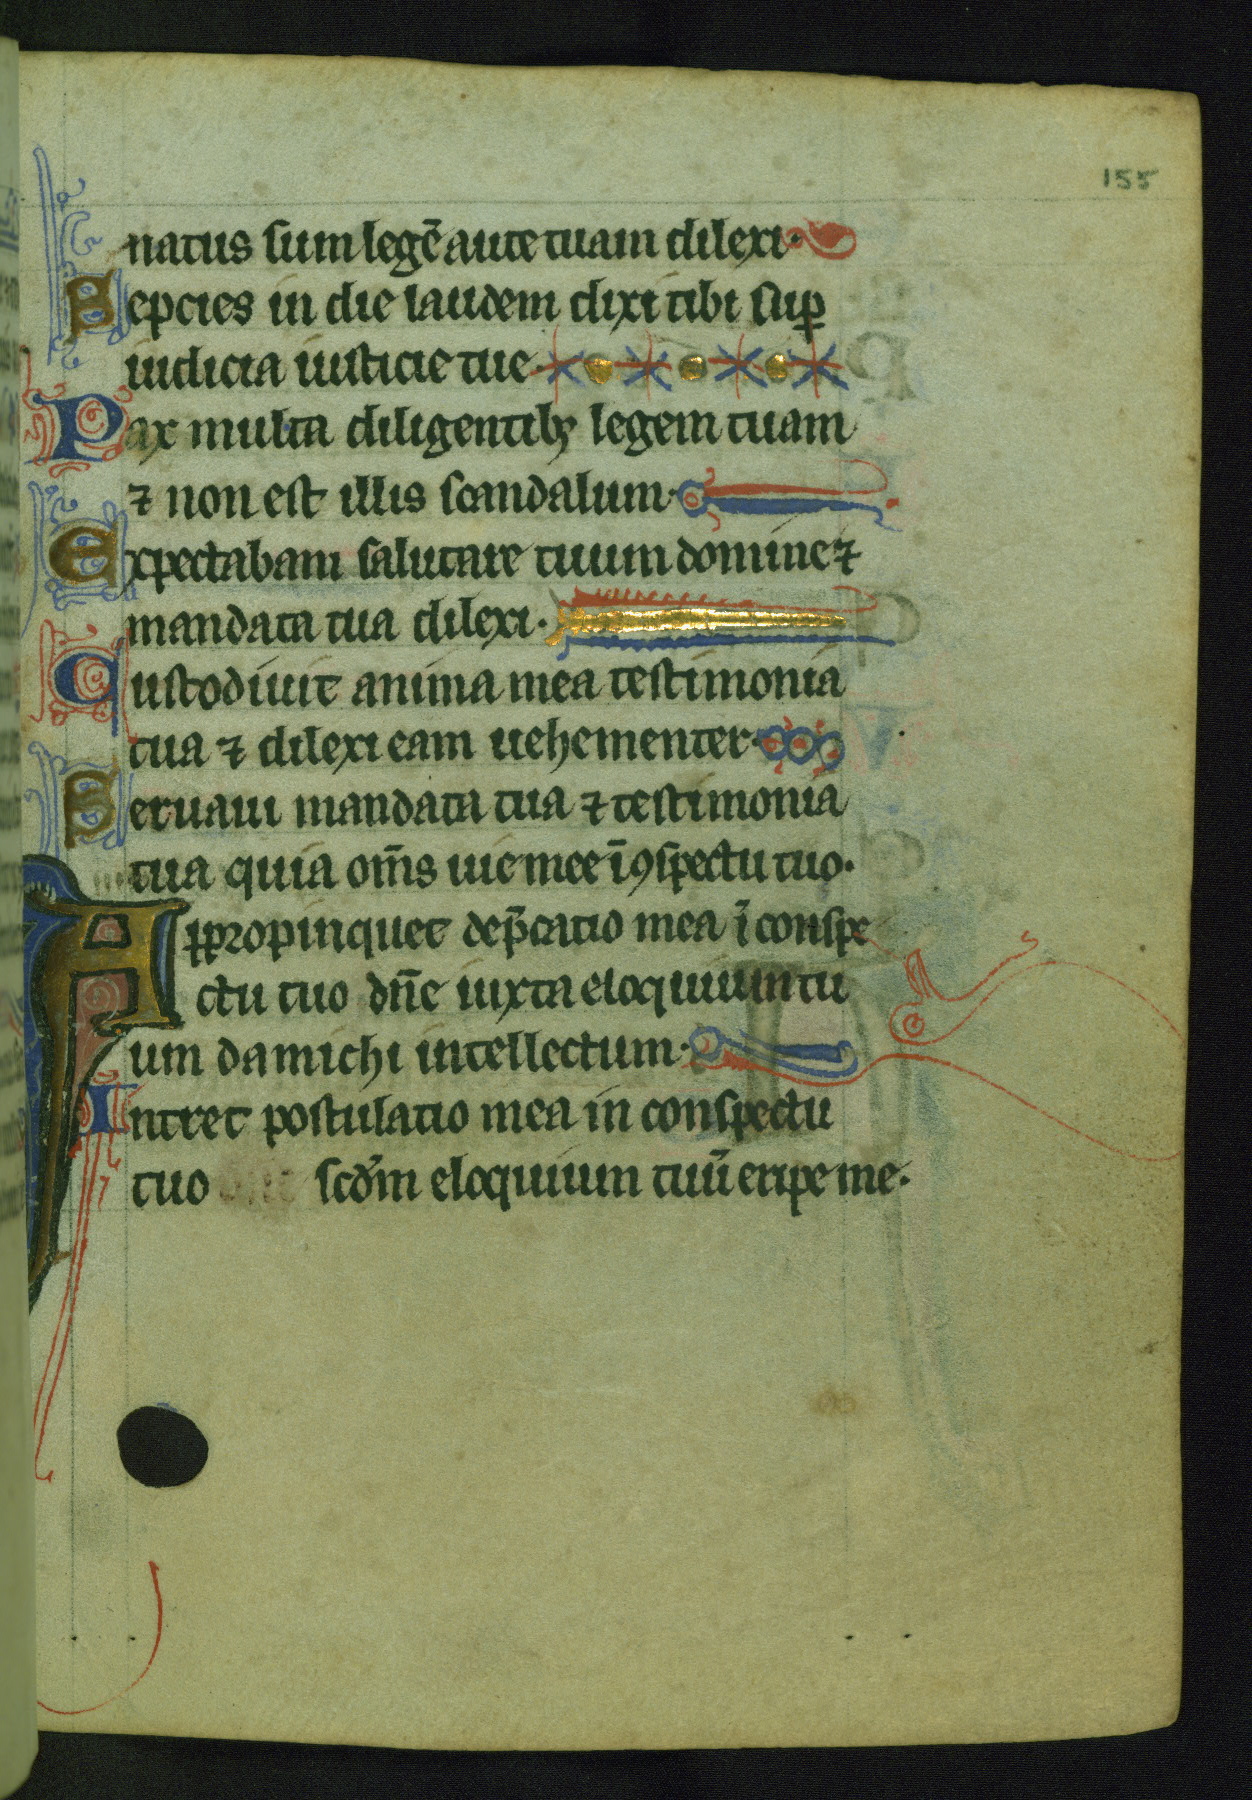 155
natus sum legē aute tuam dilexi·
Sepcies in die laudem dixi tibi suꝑ
iudicia iusticie tue·
Pax multa diligentibꝫ legem tuam
⁊ non est illis scandalum·
Expectabam salutare tuum domine ⁊
mandata tua dilexi·
Custodiuit anima mea testimonia
tua ⁊ dilexi eam uehementer·
Seruaui mandata tua ⁊ testimonia
tua quia om̄s uie mee ī ꝯspectu tuo·
Aꝓpropinquet dep̄catio mea ī conspe
ctu tuo dn̄e iuxta eloquiuum tu
um da michi intellectum·
Intret postulatio mea in conspectu
tuo scđm eloquium tuū eripe me·